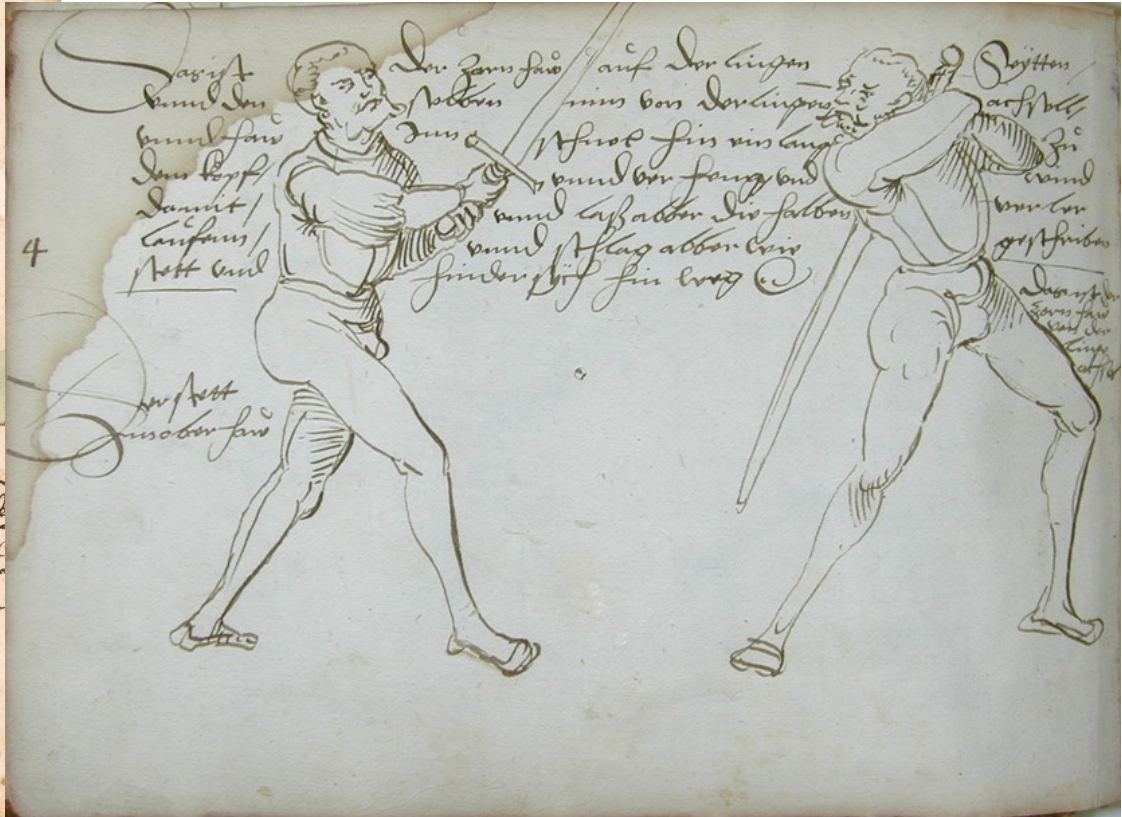 Das ist der Zorn haw auf der lingen Seÿtten
vnnd den selben nim von der lingen achssell
vnnd haw Im schnel hin ein lang zů
dem kopff / vnnd ver feng vnd wind
damit / vnnd laß abber die halben ver ler
lauffenn / vnnd schlag abber wie geschriben
stett vnd hinder sÿch hin weg
4
Das ist der
Zorn haw
von der
lingen
achssel
der stett
Im ober haw